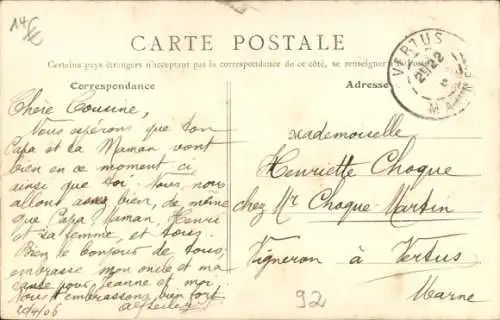 CARTE POSTALE
Certains pays étrangers n'acceptant pas la correspondance de ce côté, se renseigner
Correspondance
Adresse
VERTUS
MARNE
Chère Cousine,
Nous espérons que ton
Papa et ta Maman vont
bien en ce moment ci,
ainsi que toi. Nous, nous
allons assez bien, de même
que Papa, Maman, Henri
et sa femme, et tous.
Bien le bonjour de tous,
embrasse mon oncle et ma
pour Jeanne et moi.
Nous t'embrassons bien fort
20/4/06
Mademoiselle
Henriette Choque
chez Mr Choque Martin
Vigneron à Vertus
Marne
92